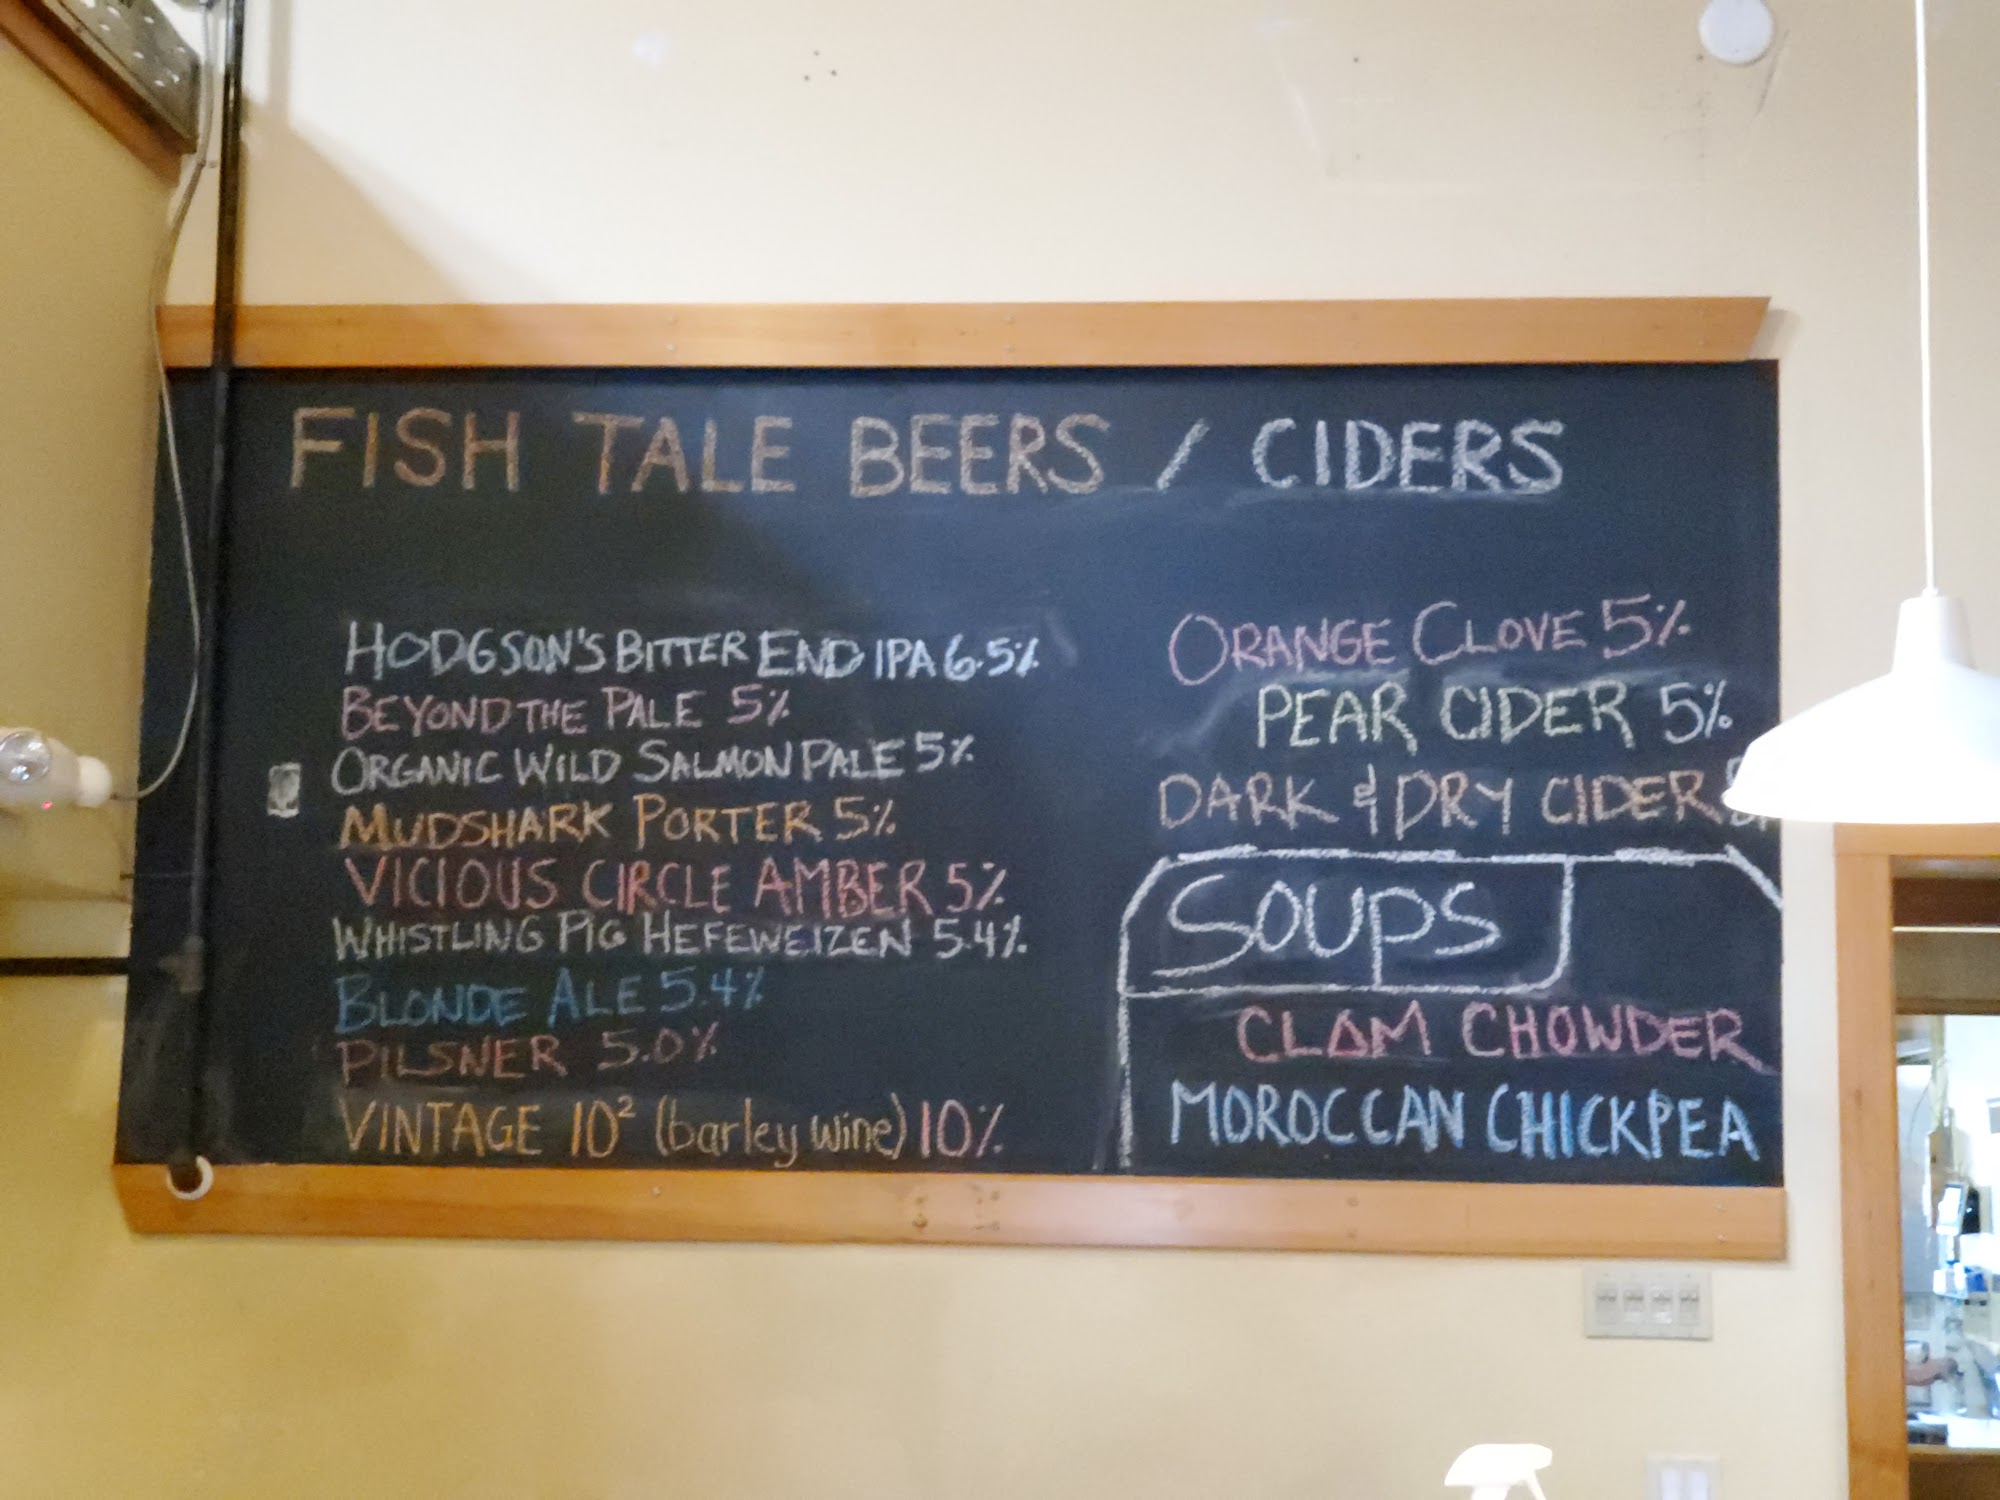 FISH TALE BEERS / CIDERS
HODGSON'S BITTER END IPA 6.5%
BEYOND THE PALE 5%
ORGANIC WILD SALMON PALE 5%
MUDSHARK PORTER 5%
VICIOUS CIRCLE AMBER 5%
WHISTLING PIG HEFEWEIZEN 5.4%
BLONDE ALE 5.4%
PILSNER 5.0%
VINTAGE 10² (barley wine) 10%
ORANGE CLOVE 5%
PEAR CIDER 5%
DARK & DRY CIDER
SOUPS
CLAM CHOWDER
MOROCCAN CHICKPEA